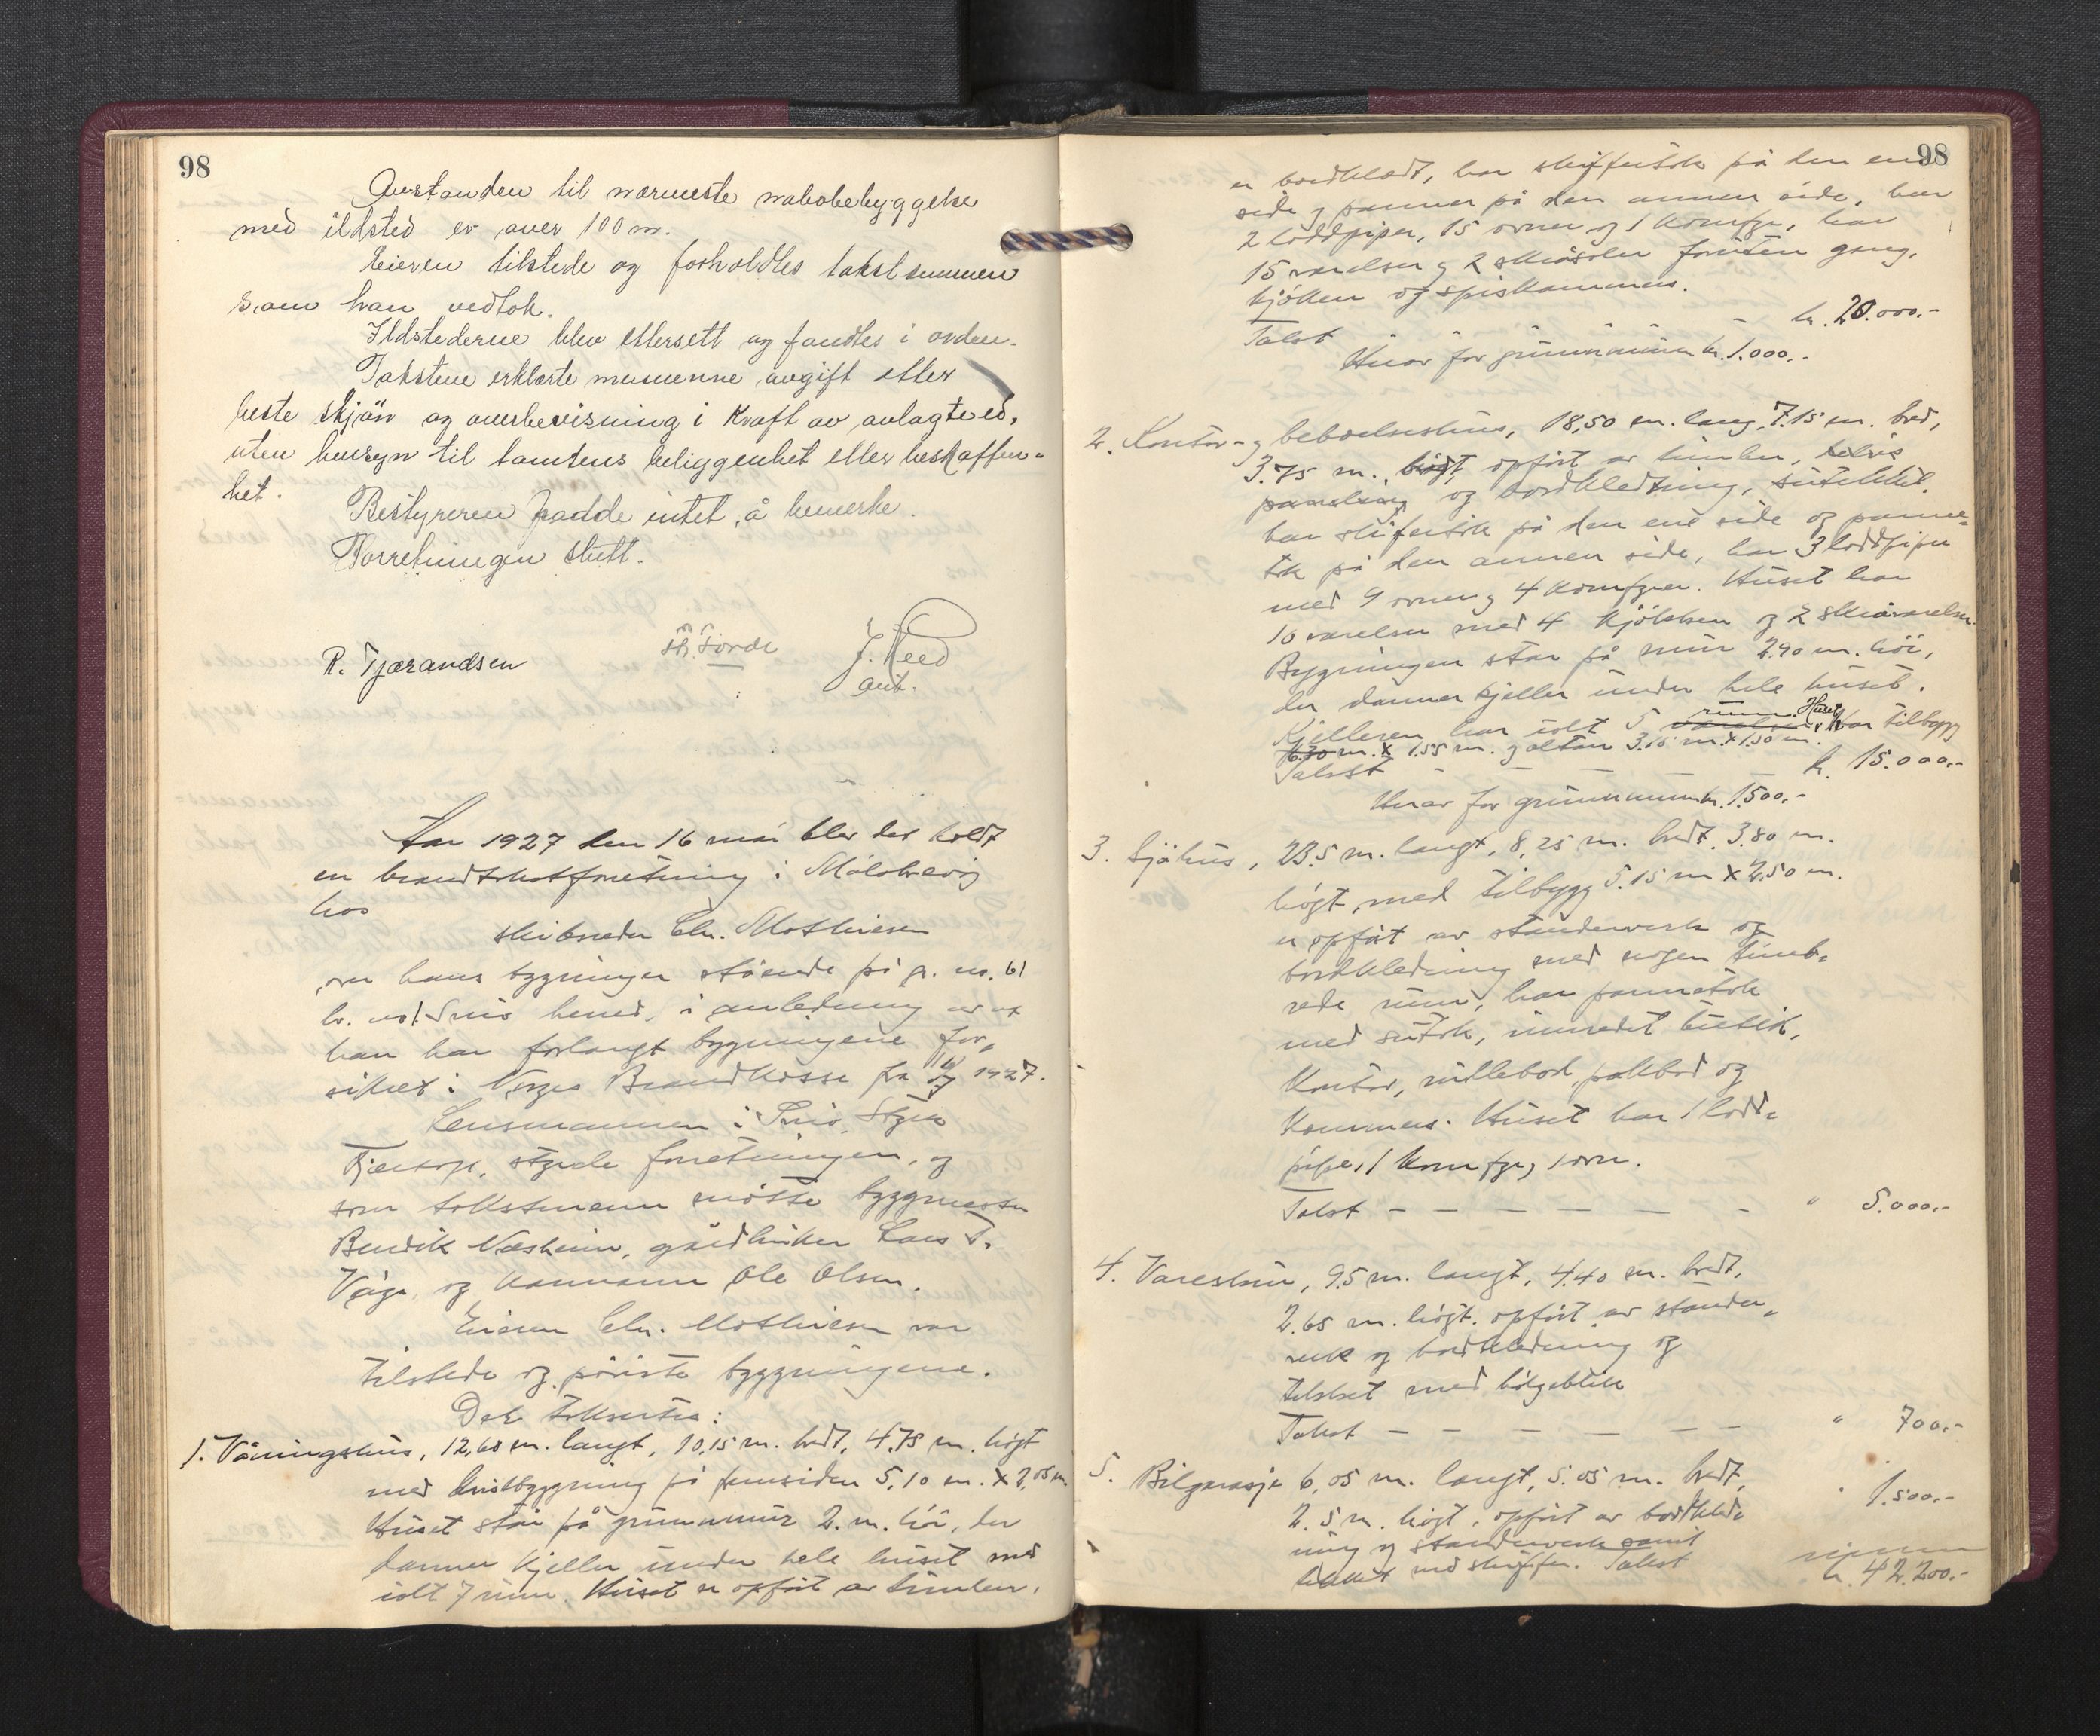 98
Avstanden til nærmeste nabobebyggelse
med ildsted er over 100 m.
Eieren tilstede og forholdtes takstsummen
som han vedtok.
Ildstederne blev ettersett og fandtes i orden.
Takstene erklærte mennene avgift etter
beste skjøn og overbevisning i kraft av avlagt ed,
uten hensyn til tomtens beliggenhet eller beskaffen-
het.
Bestyreren hadde intet å bemerke.
Forretningen slutt.
R. Tjærandsen
J. Reed
Aar 1927 den 16 mai blev det holdt
en brandtakstforretning i
hos
skibsreder Chr. Mathiesen
over hans bygninger stående på g. no. 61
br. no. 1 herred, i anledning av at
han har forlangt bygningene for-
sikret i Norges Brandkasse fra 1927.
Lensmannen i
styrede forretningen, og
som takstmenn møtte byggmester
Bendik Næsheim, gårdbruker Lars T.
Våge og kaumann Ole Olsen.
Eieren Chr. Mathiesen var
tilstede og påviste bygningene.
Det taksertes:
1. Våningshus, 12,60 m. langt, 10,15 m. bredt, 4.75 m. høgt
med kvistbygning på fremsiden 5,10 m. x 2,05 m.
Huset står på grunnmur 2. m. høi, der
danner kjeller under hele huset med
ialt 7 rum. Huset er opført av timber,
98
er bordklædt, har skiffertak på den ene
side og panner på den annen side, har
2 loddpiper, 15 ovner og 1 komfyr, har
15 værelser og 2 foruten gang,
kjøken og spiskammers.
Takst — kr. 20.000.-
Hvor for grunnmuren kr. 1.000.-
2. Kontor- og beboelseshus, 18,50 m. lang, 7.15 m. bred,
3.75 m. høgt, opført av timber, delvis
paneling og bordkledning,
har skifertak på den ene side og panne-
tak på den annen side, har 3 loddpiper
med 9 ovner og 4 komfyrer. Huset har
10 værelser med 4 kjøkken og 2
Bygningen står på mur 2.90 m. høi,
der danner kjeller under hele huset.
Kjelleren har ialt 5 rum. Huset har tilbygg
6.70 m. x 1.55 m. og altan 3.15 m. x 1.50 m.
Takst — — — — kr. 15.000.-
Hvor for grunnmuren kr. 1.500.-
3. Sjøhus, 23.5 m. langt, 8,25 m. bredt, 3.80 m.
høgt, med tilbygg 5.15 m x 2.50 m.
er opført av standerverk og
bordkledning med nogen timb-
rede rum, har pannetak
med sutak, innredet butikk,
Kontor, pakbod og
Kammers. Huset har 1 lodd-
pipe, 1 komfyr, 1 ovn.
Takst — — — — — — " 5.000.-
4. 9.5 m. langt, 4.40 m. bredt,
2.65 m. høgt, opført av stander-
verk og bordkledning og
tekket med bølgeblikk
Takst — — — — — — " 700.-
5. Bilgarasje 6,05 m. langt, 5.05 m. bredt,
2.5 m. høgt, opført av bordkled-
ning og standerverk samt
tekket med skiffer. Takst " 1.500.-
kr. 42.200.-